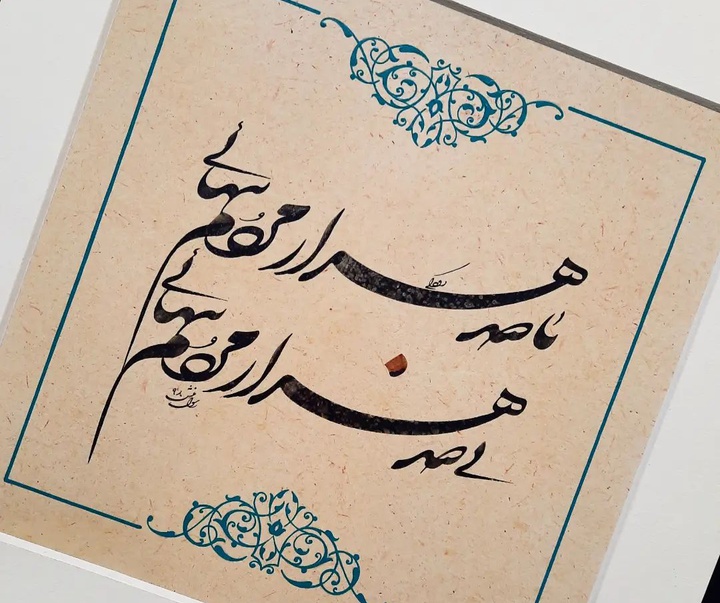 با صد هزار مردم تنهایی
رودکی
بی صد هزار مردم تنهایی